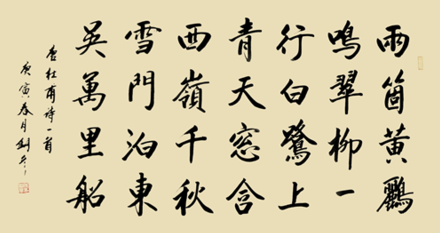 兩箇黃鸝
鳴翠柳一
行白鷺上
青天窓含
西嶺千秋
雪門泊東
吳萬里船
杜甫诗一首
庚寅春月